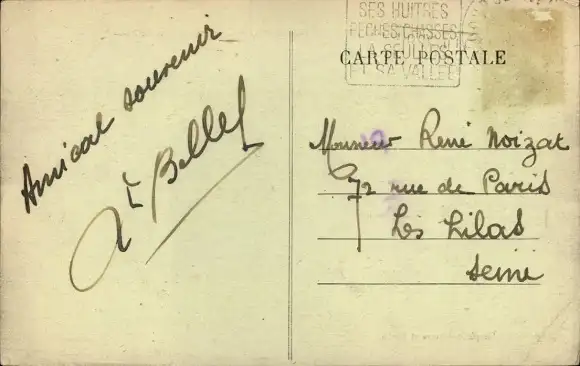 Amical souvenir
Bellef
SES HUITRES
PECHES CHASSES
ET SA VALLEE
CARTE POSTALE
Monsieur René Noizat
72 rue de Paris
Les Lilas
Seine